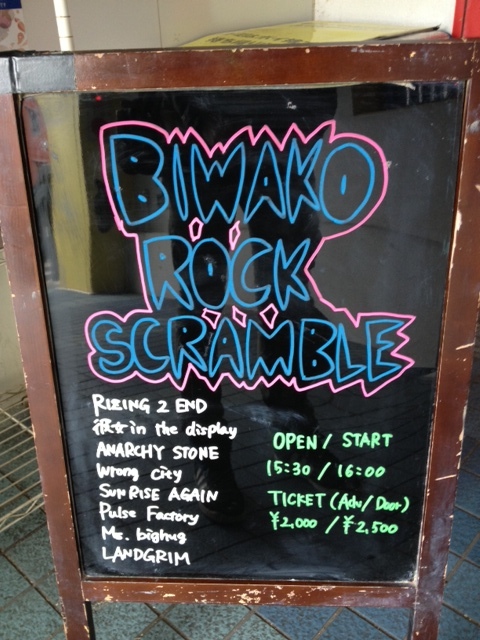 BIWAKO
ROCK
SCRAMBLE
RIZING 2 END
彼女 in the display
ANARCHY STONE
Wrong City
SunRISE AGAIN
Pulse Factory
Ms. bighug
LANDGRIM
OPEN / START
15:30 / 16:00
TICKET (Adv/Door)
¥2,000 / ¥2,500